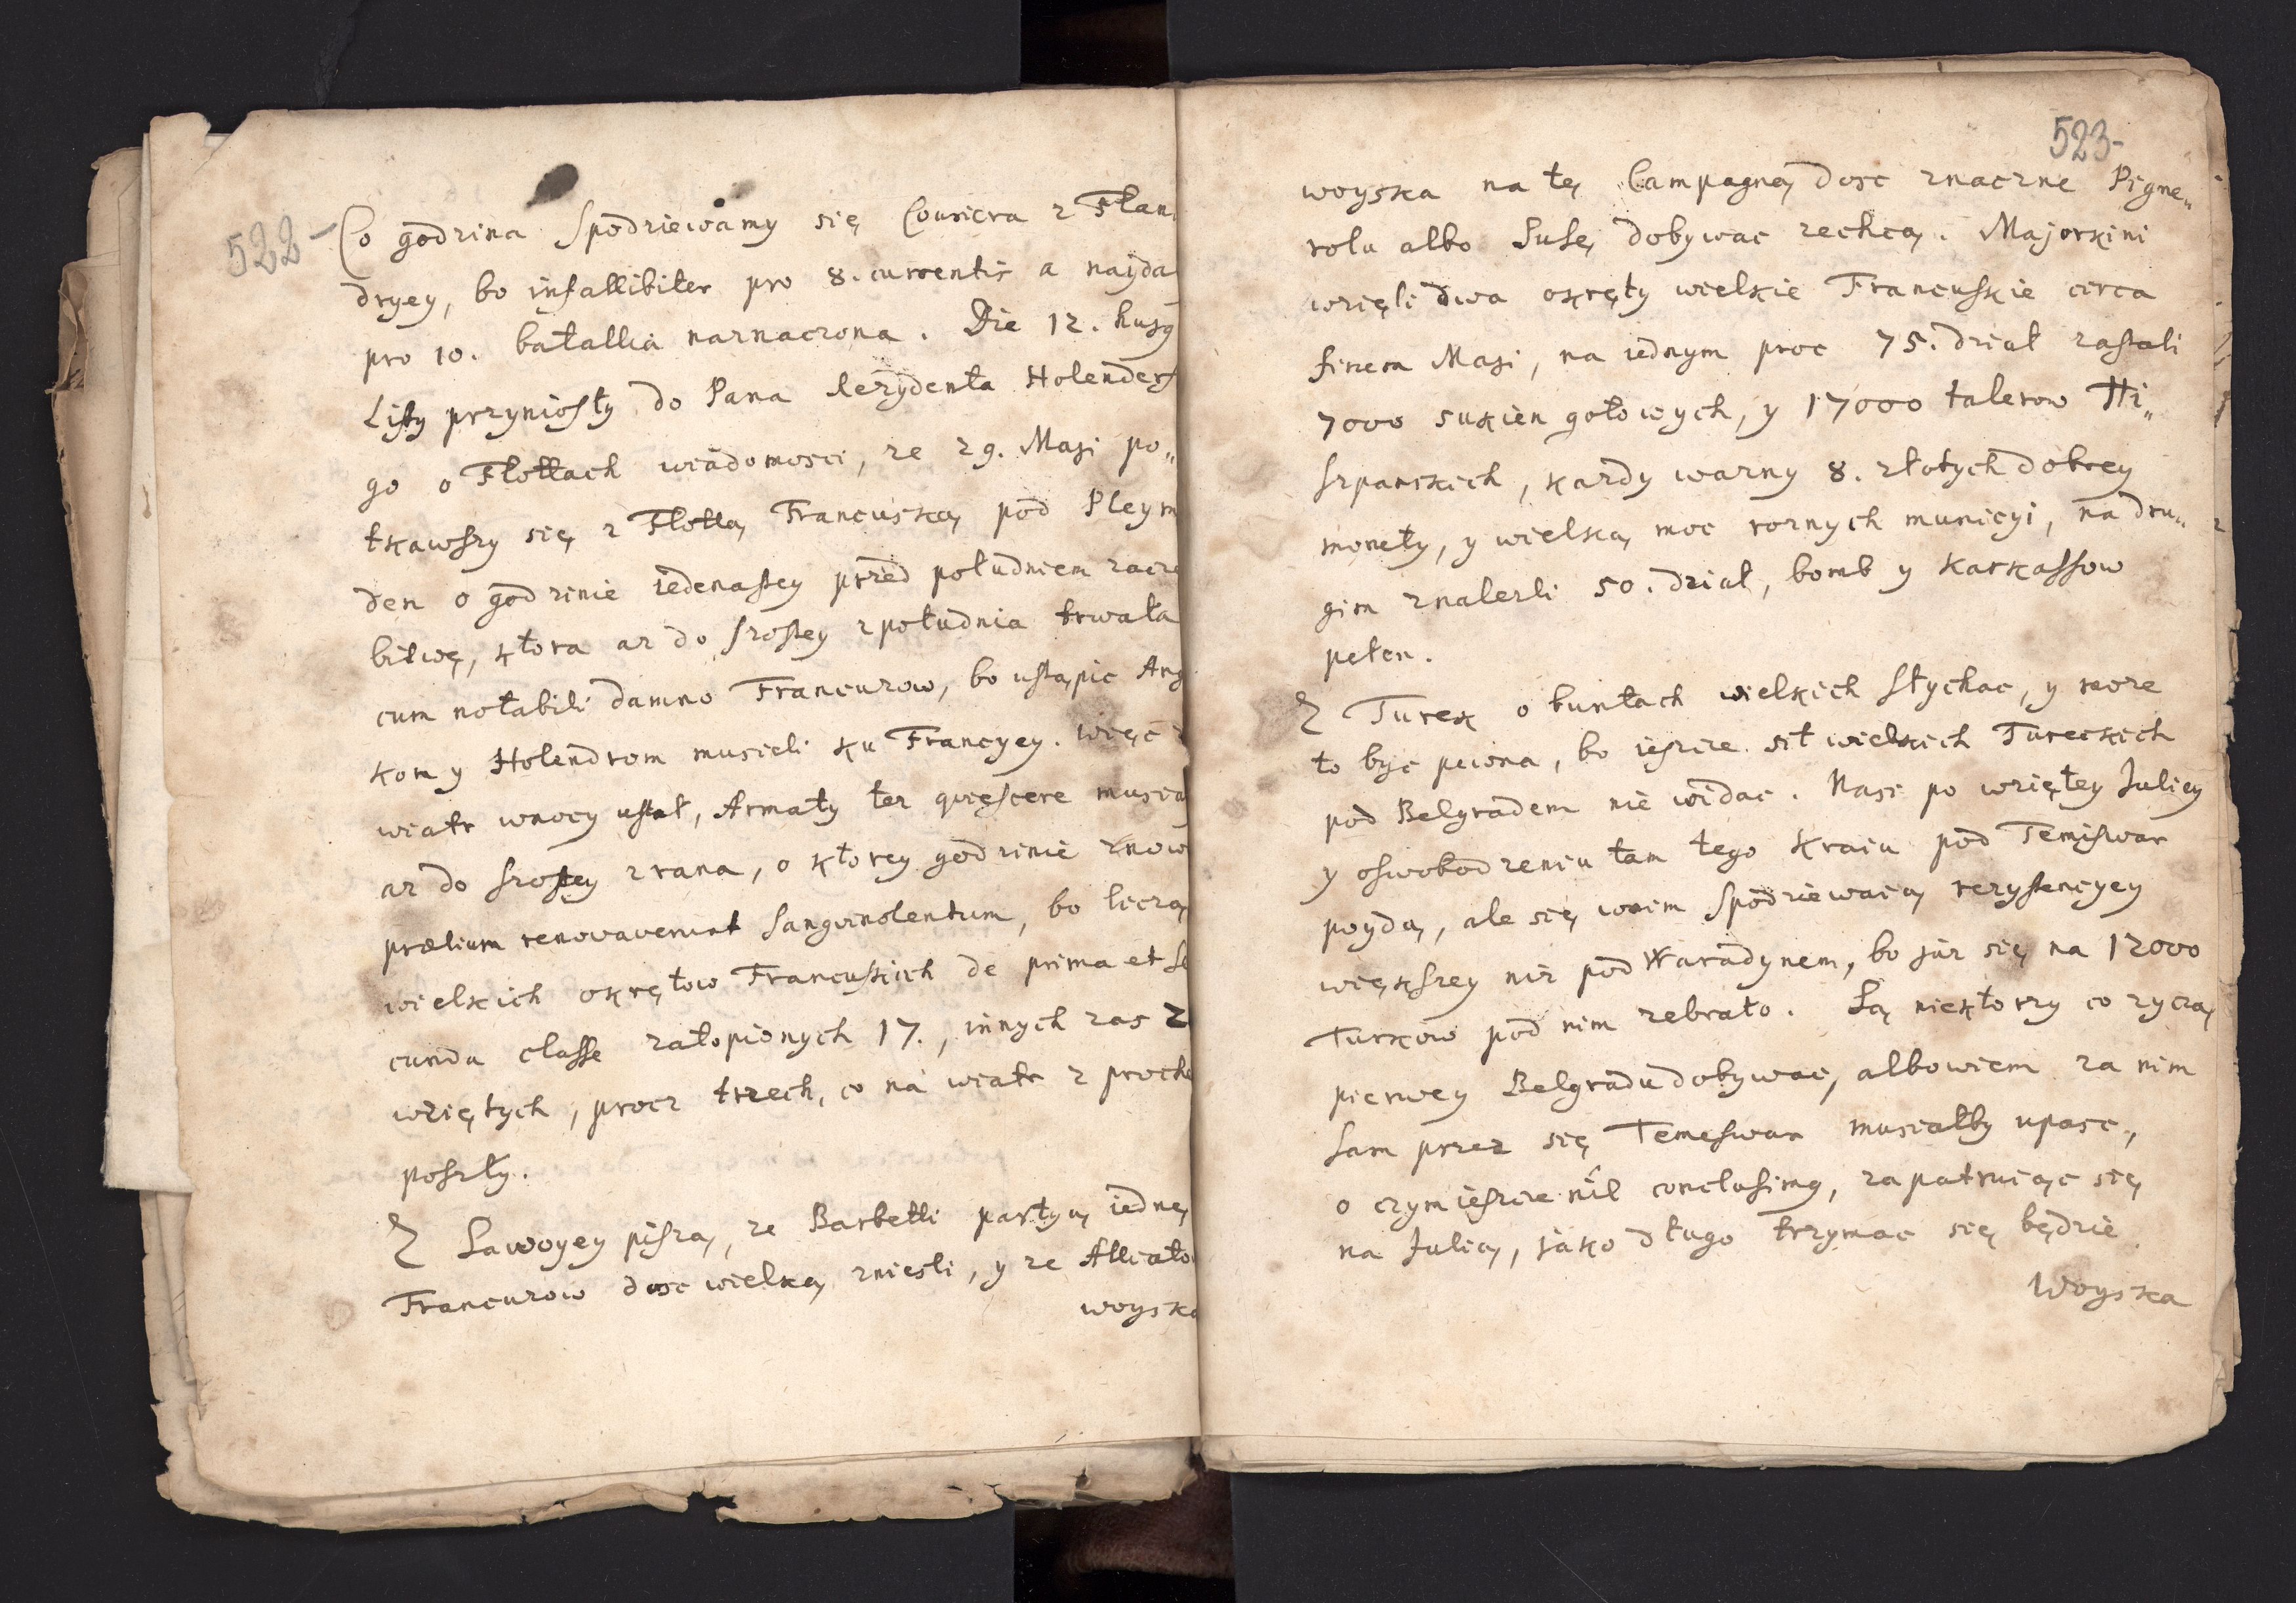 522-
Co godzina Spodziewamy się Couriera z Flan
dryey, bo infallibiter pro 8. currentis a nayda
pro 10. batallia naznaczona. Die 12. husg
Listy przyniosły do Pana Rezydenta Holenders
go o Flottach wiadomosci, ze 29. Maji po„
tkawszy się z Flottą Francuską pod Pleym
den o godzinie iedenastey przed południem zacze
bitwę, ktora az do szostey zpołudnia trwała
cum notabili damno Francuzow, bo ustąpic Ang
kom y Holendrom musieli ku Francyey. Więc
wiatr wnocy ustał, Armaty tez qviescere musia
az do szostey zrana, o ktorey godzinie znow
prælium renovaverunt Sangvinolentum, bo liczą
wielkich okrętow Francuskich de prima et Se
cunda classe zatopionych 17., innych zas 2
wziętych, procz trzech, co na wiatr z proche
poszły.
Z Sawoyey piszą, ze Barbetti partyą iednę
Francuzow dosc wielką zniesli, y ze Alliato
woyska
523-
woyska na tę Campagnę dosc znaczne Pigne„
rolu albo Susę dobywac zechcą. Majorkini
wzięli dwa okręty wielkie Francuskie circa
finem Maji, na iednym procz 75. dział zastali
7000 sukien gotowych, y 17000 talerow Hi„
szpanskich, kazdy wazny 8. złotych dobrey
monety, y wielką moc roznych municyi, na dru„
gim znalezli 50. dział, bomb y Karkassow
pełen.
Z Turek o buntach wielkich słychac, y moze
to byc pewna, bo ieszcze sił wielkich Tureckich
pod Belgradem nie widac. Nasi po wziętey Juliey
y oswobodzeniu tam tego kraiu pod Temiswar
poydą, ale się wnim Spodziewaią rezystencyey
większey niz pod Waradynem, bo juz się na 12000
Turkow pod nim zebrało. Są niektorzy co zyczą
pierwey Belgradu dobywac, albowiem za nim
Sam przez się Temeswar musiałby upasc.,
o czym ieszcze nil conclusimy, zapatruiąc się
na Julią, jako długo trzymac się będzie
Woyska